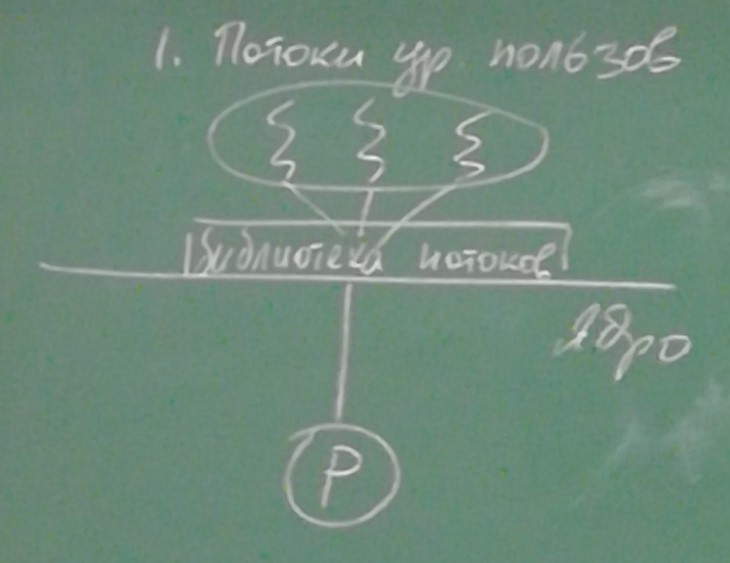 1. Потоки ур. пользов
Библиотека потоков
Ядро
P